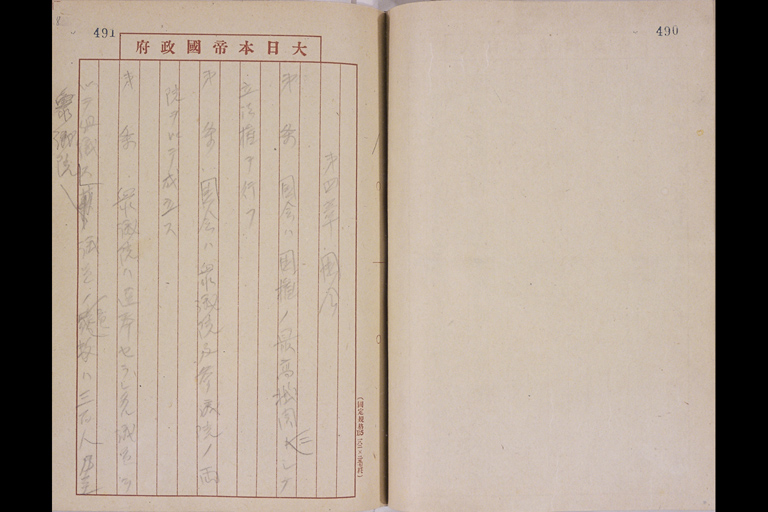 490
491
大日本帝國政府
第四章 国会
第 条 国会ハ国権ノ最高機関ニシテ
立法権ヲ行フ
第 条 国会ハ衆議院及参議院ノ両
院ヲ以テ成立ス
第 条 衆議院ハ選挙セラレタル議員ヲ
以テ組織ス 議員ノ定数ハ三百人乃至
衆議院